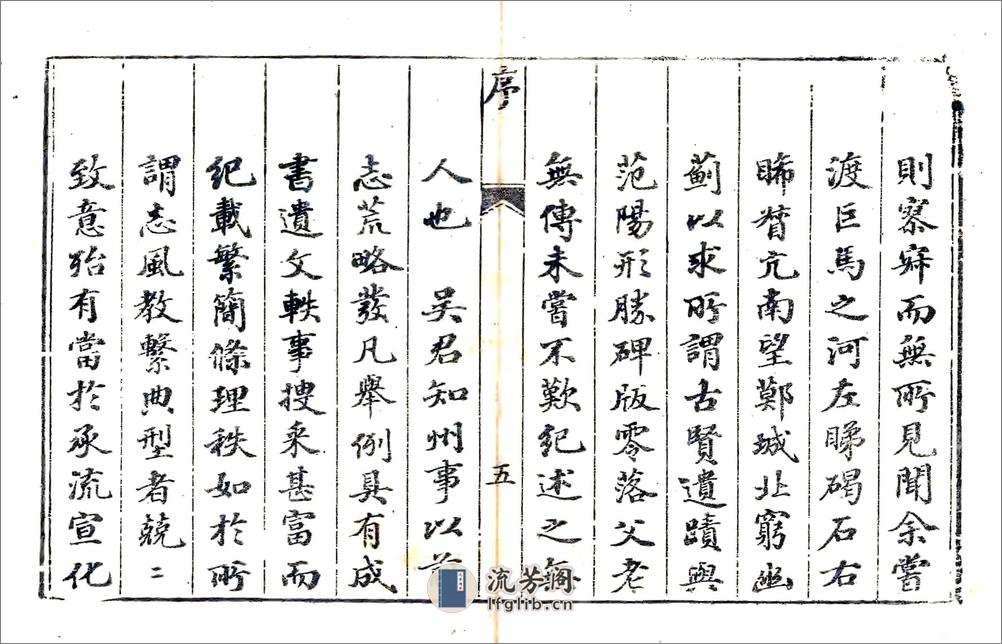 則而無所見聞余嘗
渡巨馬之河左睇碣石右
睎督亢南望鄭城北窮幽
薊以求所謂古賢遺蹟與
范陽形勝碑版零落父老
無傳未嘗不歎紀述之無
序
五
人也　吳君知州事以前
志荒略發凡舉例具有成
書遺文軼事搜采甚富而
紀載繁簡條理秩如於所
謂志風教繫典型者兢〻
致意殆有當於承流宣化
流芳阁
lfglib.cn